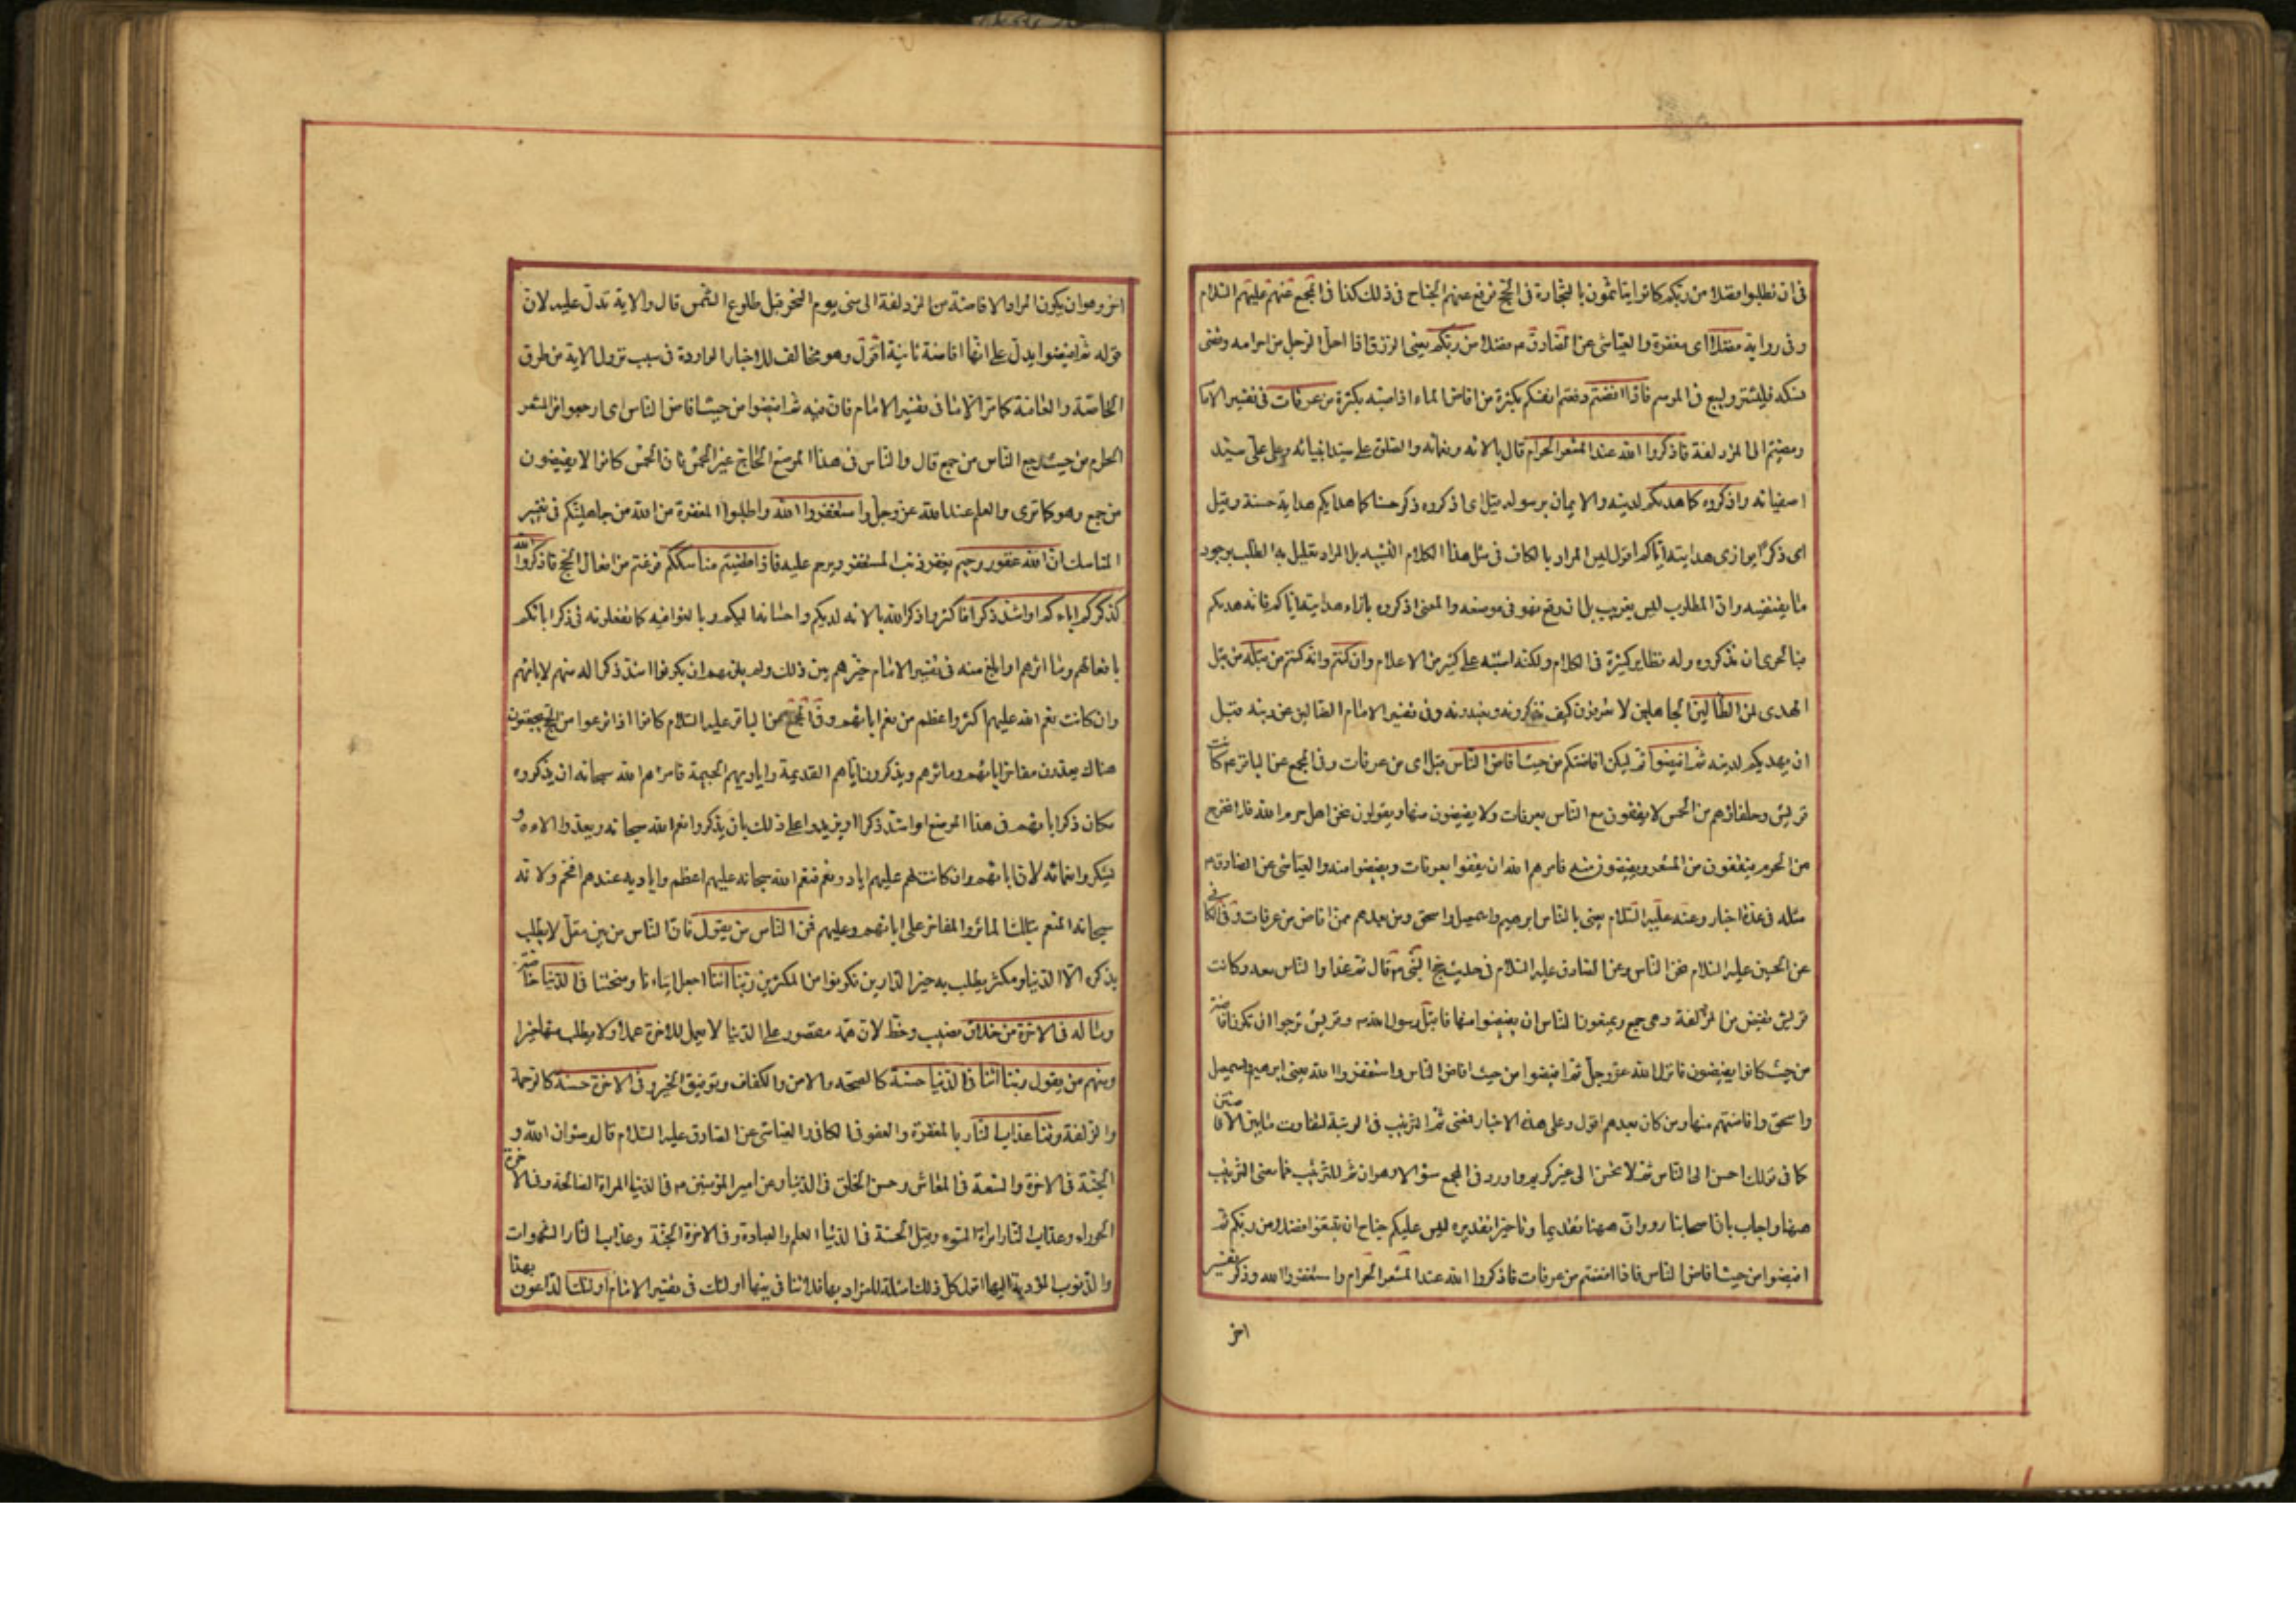 في ان تطلبوا فضلا من ربكم كانوا يتأثمون بالتجارة في الحج فرفع عنهم الجناح في ذلك كذا في المجمع عنهم عليهم السلام
وفي رواية فضلا اى مغفرة والعياشي عن الصادق م فضلا من ربكم يعني الرزق اذا احل الرجل من احرامه وقضى
نسكه فليشتر وليبع في الموسم فاذا افضتم دفعتم انفسكم بكثرة من افاض الماء اذا صبه بكثرة من عرفات في تفسير الاما
ومضيتم الى المزدلفة فاذكروا الله عند المشعر الحرام قال بالائه ونعمائه والصلوة على سيد انبيائه وعلى علي سيد
اصفيائه واذكروه كما هديكم لدينه والايمان برسوله قيل اى اذكروه ذكرحسنا كما هدايكم هداية حسنة وقيل
اى ذكرا يوازى هدايته اياكم اقول ليس المراد بالكاف في مثل هذا الكلام التشبيه بل المراد تعليل به الطلب بوجود
ما يقتضيه وان المطلوب ليس بغريب بل ان وقع فهو في موضعه والمعنى اذكروه بازاء هدايته اياكم فانه هديكم
فبالحرى ان تذكروه وله نظاير كثيرة في الكلام ولكنه اشتبه على كثير من الاعلام وان كنتم وانه كنتم من قبله من قبل
الهدى لمن الضالين الجاهلين لا تعرفون كيف تذكرونه وتعبدونه وفي تفسير الامام الضالين عن دينه قبل
ان يهديكم لدينه ثم افيضوا ثم ليكن افاضتكم من حيث افاض الناس قيل اى من عرفات وفي المجمع عن الباقر م كانت
قريش وحلفاؤهم من الحمس لا يقفون مع الناس بعرفات ولا يفيضون منها ويقولون نحن اهل حرم الله فلا نخرج
من الحرم فيقفون من المشعر ويفيضون منه فامرهم الله ان يقفوا بعرفات ويفيضوا منه والعياشي عن الصادق م
مثله في عدة اخبار وعنه عليه السلام يعني بالناس ابرهيم واسمعيل واسحق ومن بعدهم ممن افاض من عرفات وفي الكافي
عن الحسين عليه السلام نحن الناس وعن الصادق عليه السلام في حديث حج النبي م قال ثم غدا والناس معه وكانت
قريش تفيض من المزدلفة وهي جمع ويمنعون الناس ان يفيضوا منها فاقبل رسول الله م وقريش ترجوا ان تكون افاضته
من حيث كانوا يفيضون فانزل الله عز وجل ثم افيضوا من حيث افاض الناس واستغفروا الله يعني ابرهيم واسمعيل
واسحق وافاضتهم منها ومن كان بعدهم اقول وعلى هذه الاخبار فمعنى ثم الترتيب في الرتبة لتفاوت ما بين الافاضتين
كما في قولك احسن الى الناس ثم لا تحسن الى غير كريم واورد في المجمع سؤالا وهو ان ثم للترتيب فما معنى الترتيب
ههنا واجاب بان اصحابنا رووا ان ههنا تقديما وتاخيرا تقديره ليس عليكم جناح ان تبتغوا فضلا من ربكم ثم
افيضوا من حيث افاض الناس فاذا افضتم من عرفات فاذكروا الله عند المشعر الحرام واستغفروا الله وذكر تفسير
اخر
اخر وهو ان يكون المراد الافاضة من المزدلفة الى منى يوم النحر قبل طلوع الشمس قال والاية تدل عليه لان
قوله ثم افيضوا يدل على انها افاضة ثانية اقول وهو مخالف للاخبار الواردة في سبب نزول الاية من طرق
الخاصة والعامة كما مر الا ما في تفسير الامام فان فيه ثم افيضوا من حيث افاض الناس اى ارجعوا من المشعر
الحرام من حيث رجع الناس من جمع قال والناس في هذا الموضع الحاج غير الحمس فان الحمس كانوا لا يفيضون
من جمع وهو كما ترى والعلم عند الله عز وجل واستغفروا الله واطلبوا المغفرة من الله من جاهليتكم في تغيير
المناسك ان الله غفور رحيم يغفر ذنب المستغفر ويرحم عليه فاذا قضيتم مناسككم فرغتم من افعال الحج فاذكروا الله
كذكركم اباءكم او اشد ذكرا فاكثروا ذكر الله بالائه لديكم واحسانه اليكم وبالغوا فيه كما تفعلونه في ذكر ابائكم
بافعالهم وماثرهم او ابلغ منه في تفسير الامام خيرهم بين ذلك ولم يلزمهم ان يكونوا اشد ذكرا له منهم لابائهم
وان كانت نعم الله عليهم اكثر واعظم من نعم ابائهم وفي المجمع عن الباقر عليه السلام كانوا اذا فرغوا من الحج يجتمعون
هناك يعدون مفاخر ابائهم وماثرهم ويذكرون ايامهم القديمة واياديهم الجسيمة فامرهم الله سبحانه ان يذكروه
مكان ذكر ابائهم في هذا الموضع او اشد ذكرا او يزيدوا على ذلك بان يذكروا نعم الله سبحانه ويعدوا الاءه و
يشكروا نعمائه لان ابائهم وان كانت لهم عليهم اياد ونعم فنعم الله سبحانه عليهم اعظم واياديه عندهم افخم ولانه
سبحانه المنعم بتلك الماثر والمفاخر على ابائهم وعليهم فمن الناس من يقول فان الناس من بين مقل لا يطلب
بذكره الا الدنيا ومكثر يطلب به خير الدارين فكونوا من المكثرين ربنا اتنا اجعل ايتاءنا ومنحتنا في الدنيا خاصة
وما له في الاخرة من خلاق نصيب وحظ لان همه مقصور على الدنيا لا يعمل للاخرة عملا ولا يطلب منها خيرا
ومنهم من يقول ربنا اتنا في الدنيا حسنة كالصحة والامن والكفاف وتوفيق الخير وفي الاخرة حسنة كالرحمة
والزلفة وقنا عذاب النار بالمغفرة والعفو في الكافي والعياشي عن الصادق عليه السلام قال رضوان الله و
الجنة في الاخرة والسعة في المعاش وحسن الخلق في الدنيا وعن امير المؤمنين م في الدنيا المراة الصالحة وفي الاخرة
الحوراء وعذاب النار امراة السوء وقيل الحسنة في الدنيا العلم والعبادة وفي الاخرة الجنة وعذاب النار الشهوات
والذنوب المؤدية اليها اقول كل ذلك امثلة للمراد بها فلا تنافي بينها اولئك في تفسير الامام اولئك الداعون بهذا